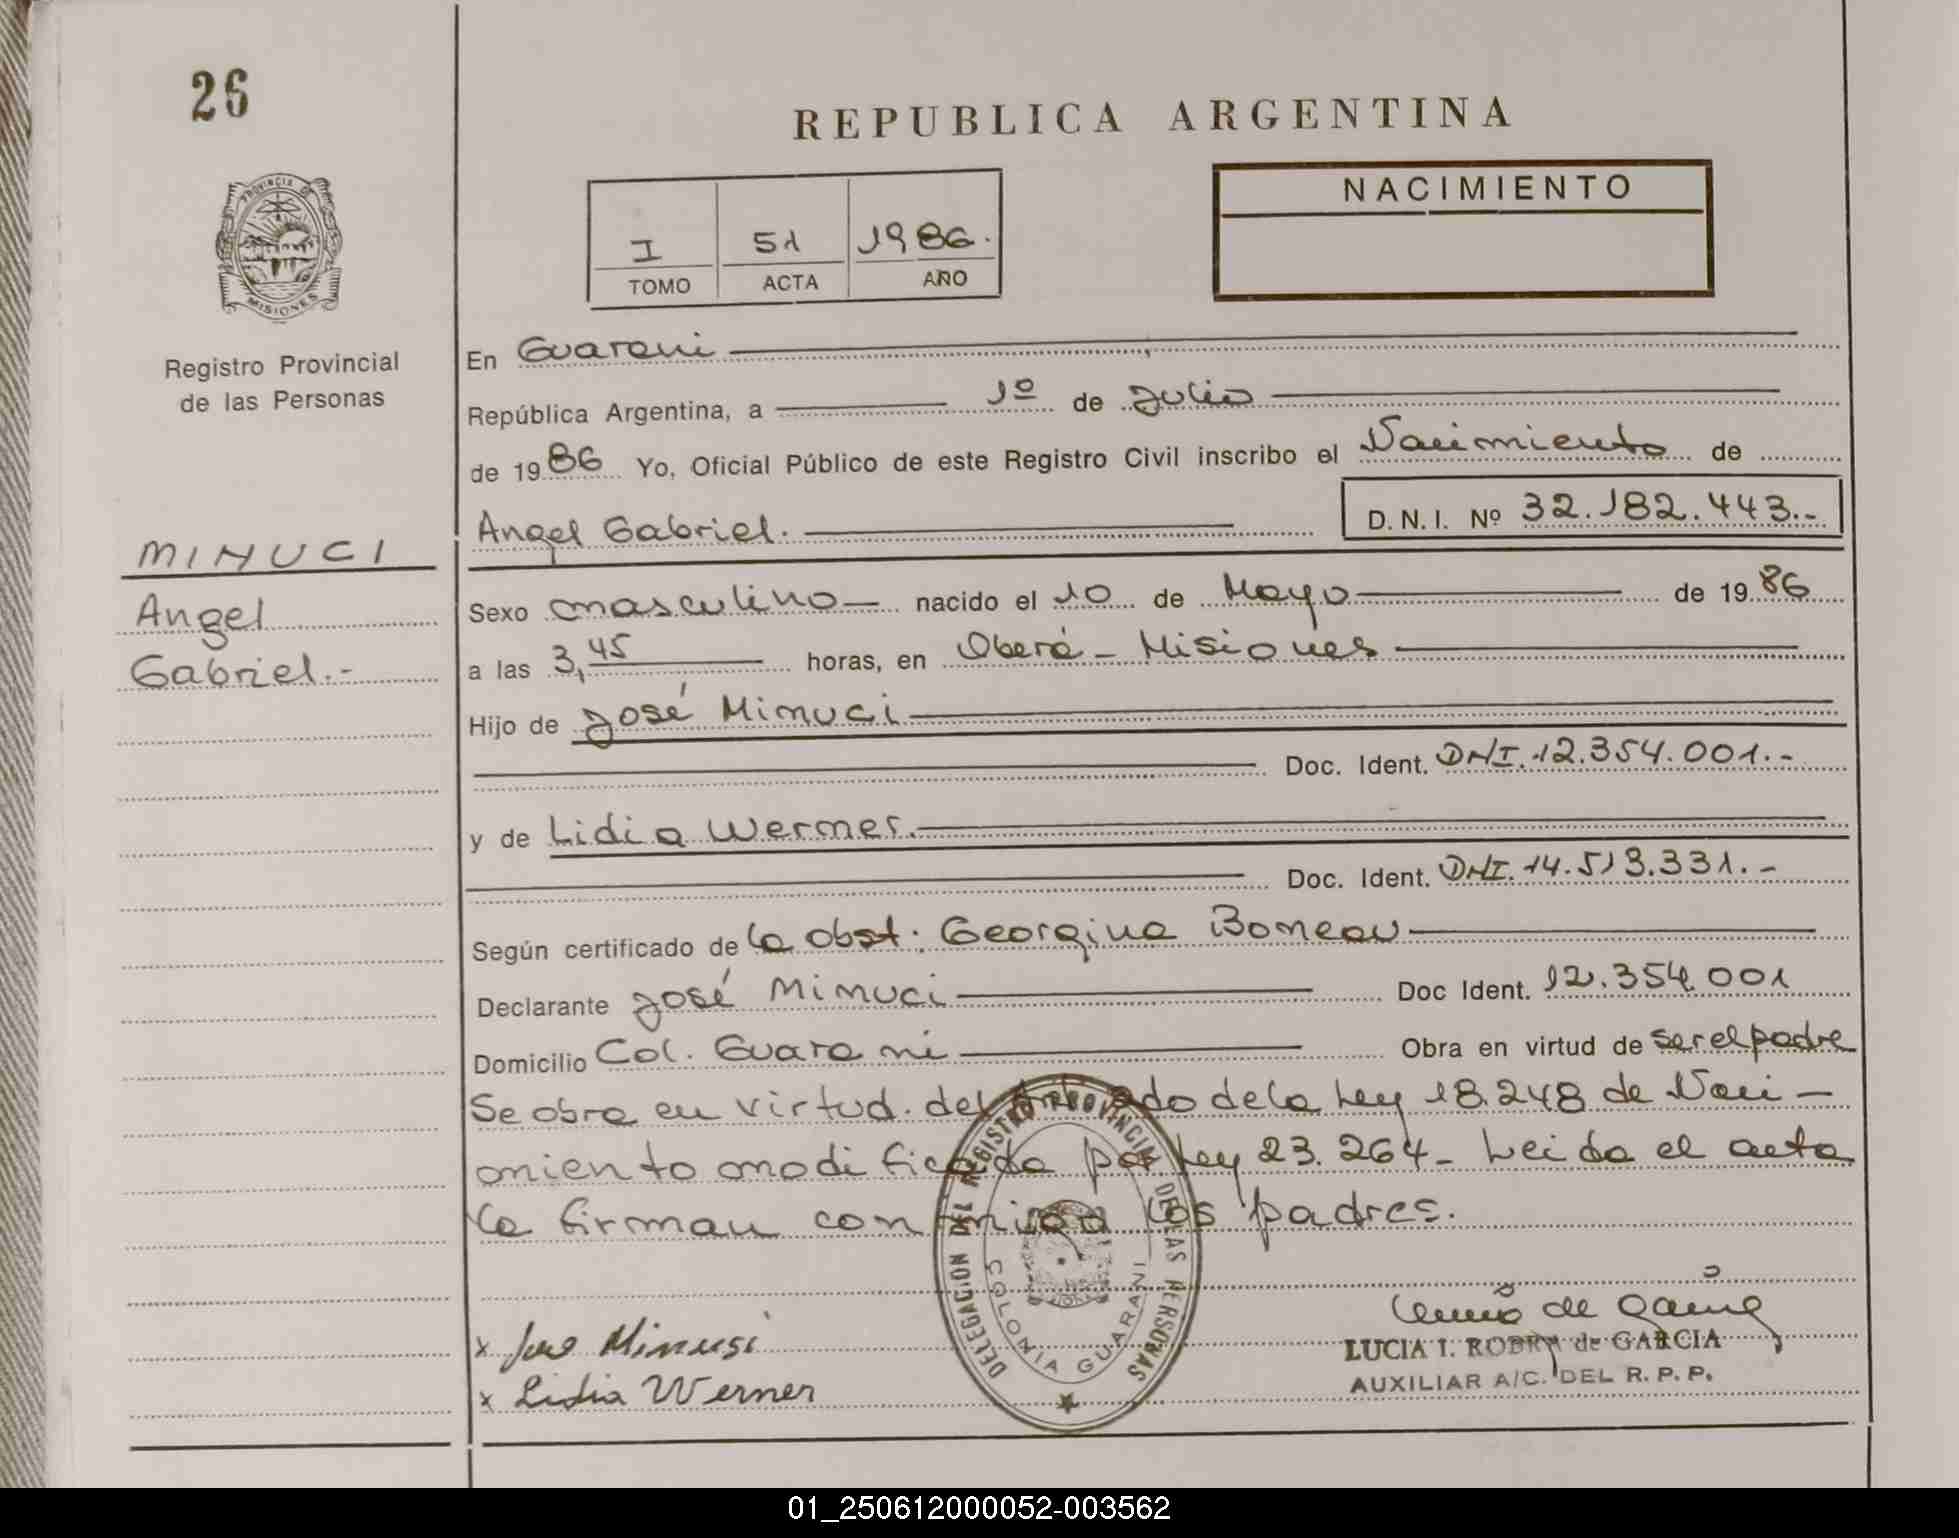 26
REPUBLICA ARGENTINA
NACIMIENTO
I 51 1986.
TOMO ACTA AÑO
PROVINCIA DE
MISIONES
Registro Provincial
de las Personas
MINUCI
Angel
Gabriel.-
En Guarani
República Argentina, a 1º de Julio
de 1986 Yo, Oficial Público de este Registro Civil inscribo el Nacimiento de
Angel Gabriel. D.N.I. Nº 32.182.443.-
Sexo masculino nacido el 10 de Mayo de 1986
a las 3,45 horas, en Oberá - Misiones
Hijo de José Minuci
Doc. Ident. DNI. 12.354.001.-
y de Lidia Werner.
Doc. Ident. DNI. 14.513.331.-
Según certificado de la obst. Georgina Boneau
Declarante José Minuci Doc Ident. 12.354.001
Domicilio Col. Guarani Obra en virtud de ser el padre
Se obra en virtud. del de la Ley 18.248 de Naci-
miento modificada por Ley 23.264- Leida el acta
la firman conmigo los padres.
DELEGACION DEL REGISTRO PROVINCIAL DE LAS PERSONAS
COLONIA GUARANI
x Jose Minusi
x Lidia Werner
de Garcia
LUCIA I. de GARCIA
AUXILIAR A/C. DEL R. P. P.
01_250612000052-003562